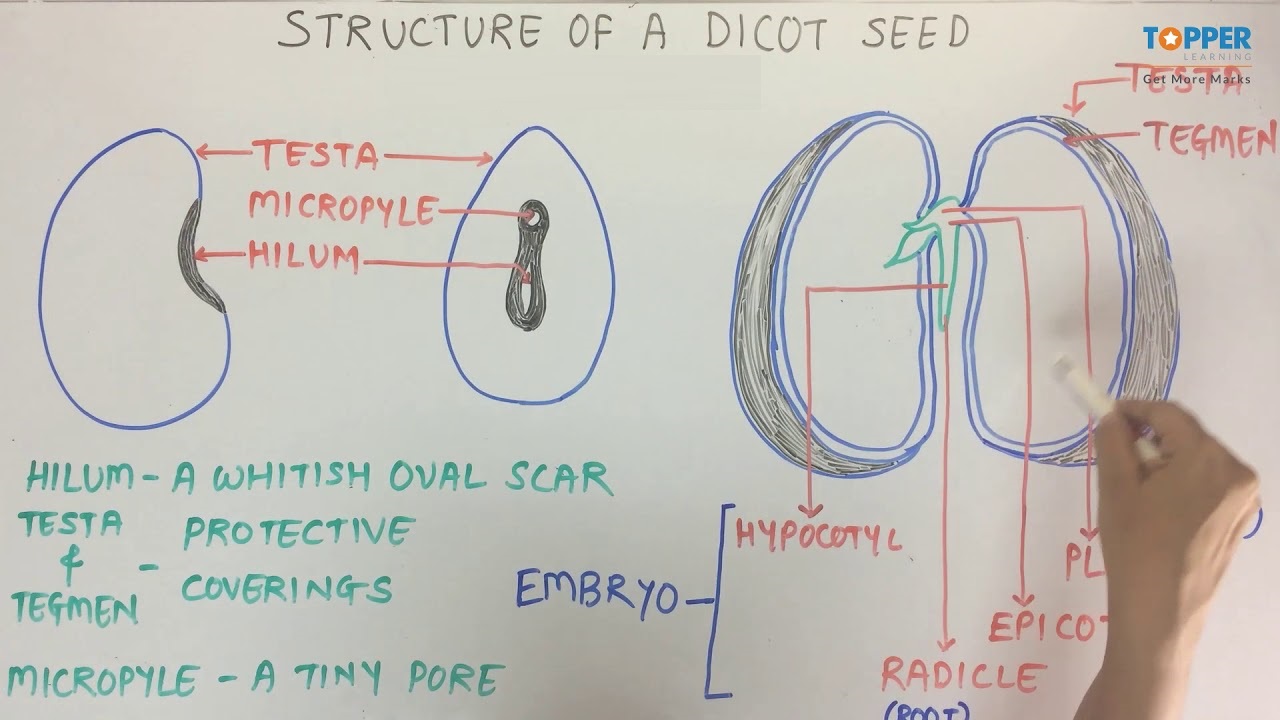 STRUCTURE OF A DICOT SEED
TOPPER
LEARNING
Get More Marks
TESTA
MICROPYLE
HILUM
TESTA
TEGMEN
HILUM - A WHITISH OVAL SCAR
TESTA
& - PROTECTIVE
TEGMEN COVERINGS
MICROPYLE - A TINY PORE
EMBRYO
HYPOCOTYL
PL
EPICOT
RADICLE
(ROOT)